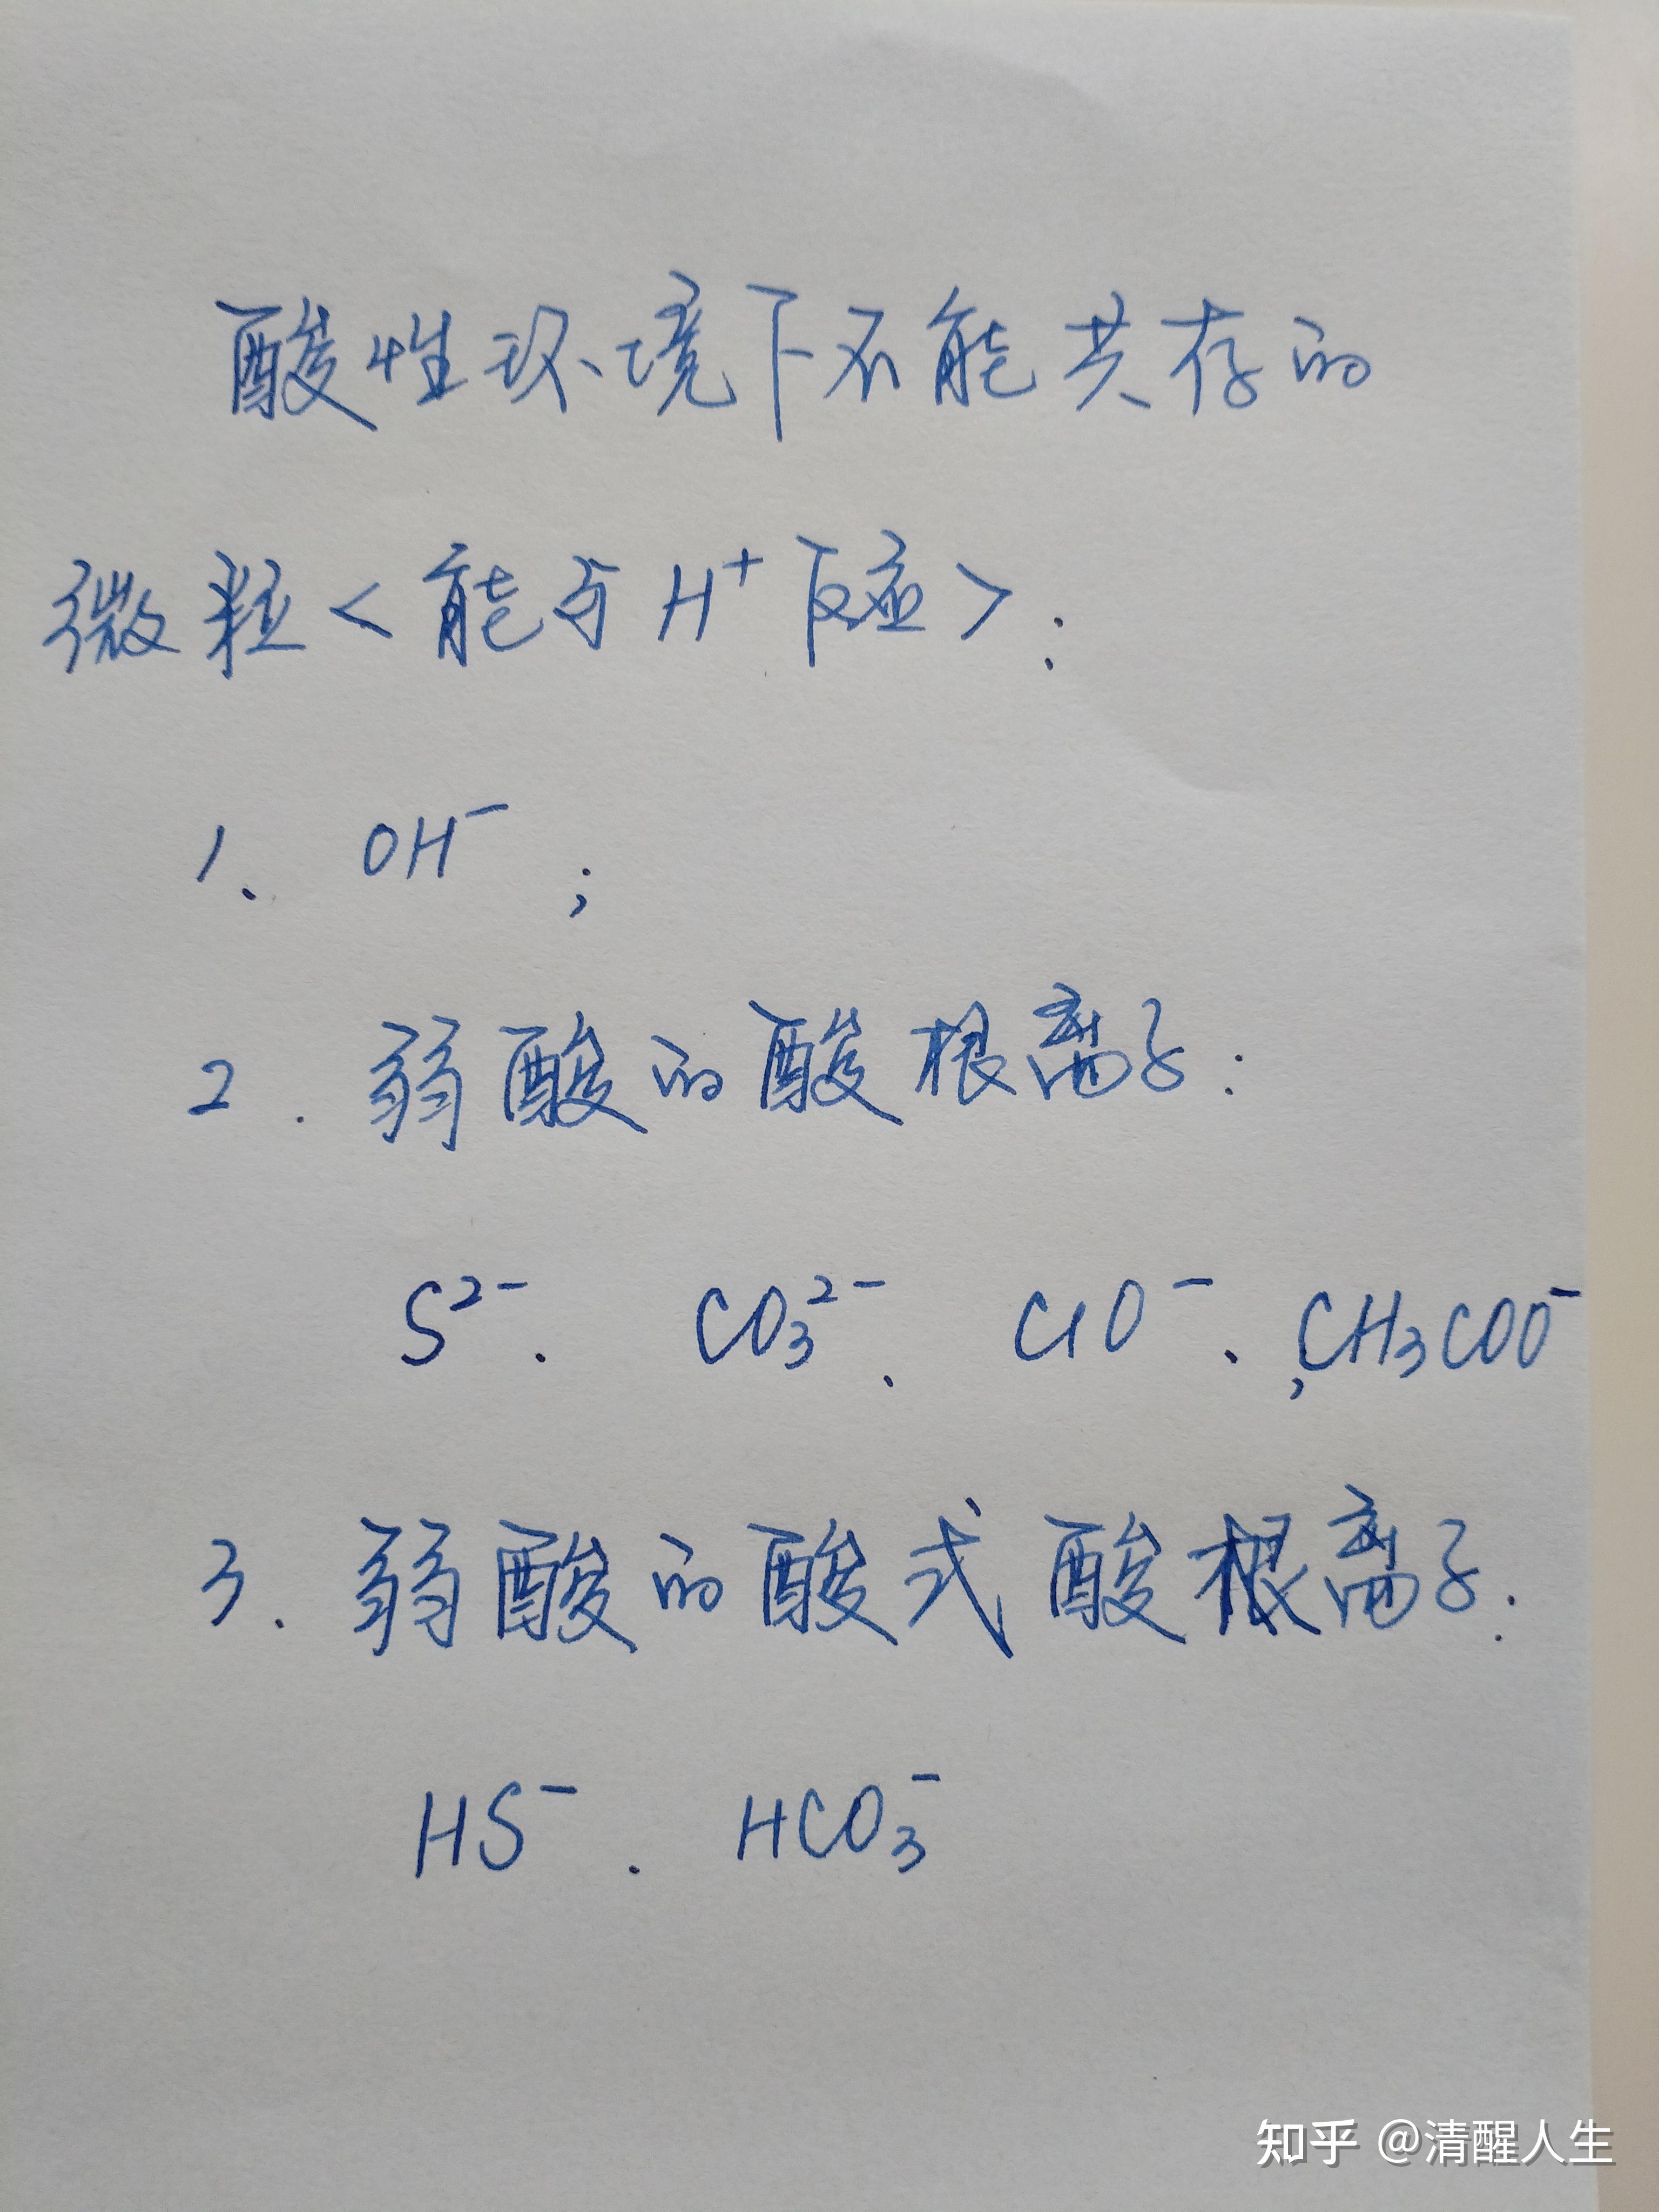 酸性环境下不能共存的
微粒<能与H⁺反应>:
1、OH⁻;
2.弱酸的酸根离子:
S²⁻.CO₃²⁻.ClO⁻.,CH₃COO⁻
3.弱酸的酸式酸根离子:
HS⁻.HCO₃⁻
知乎 @清醒人生